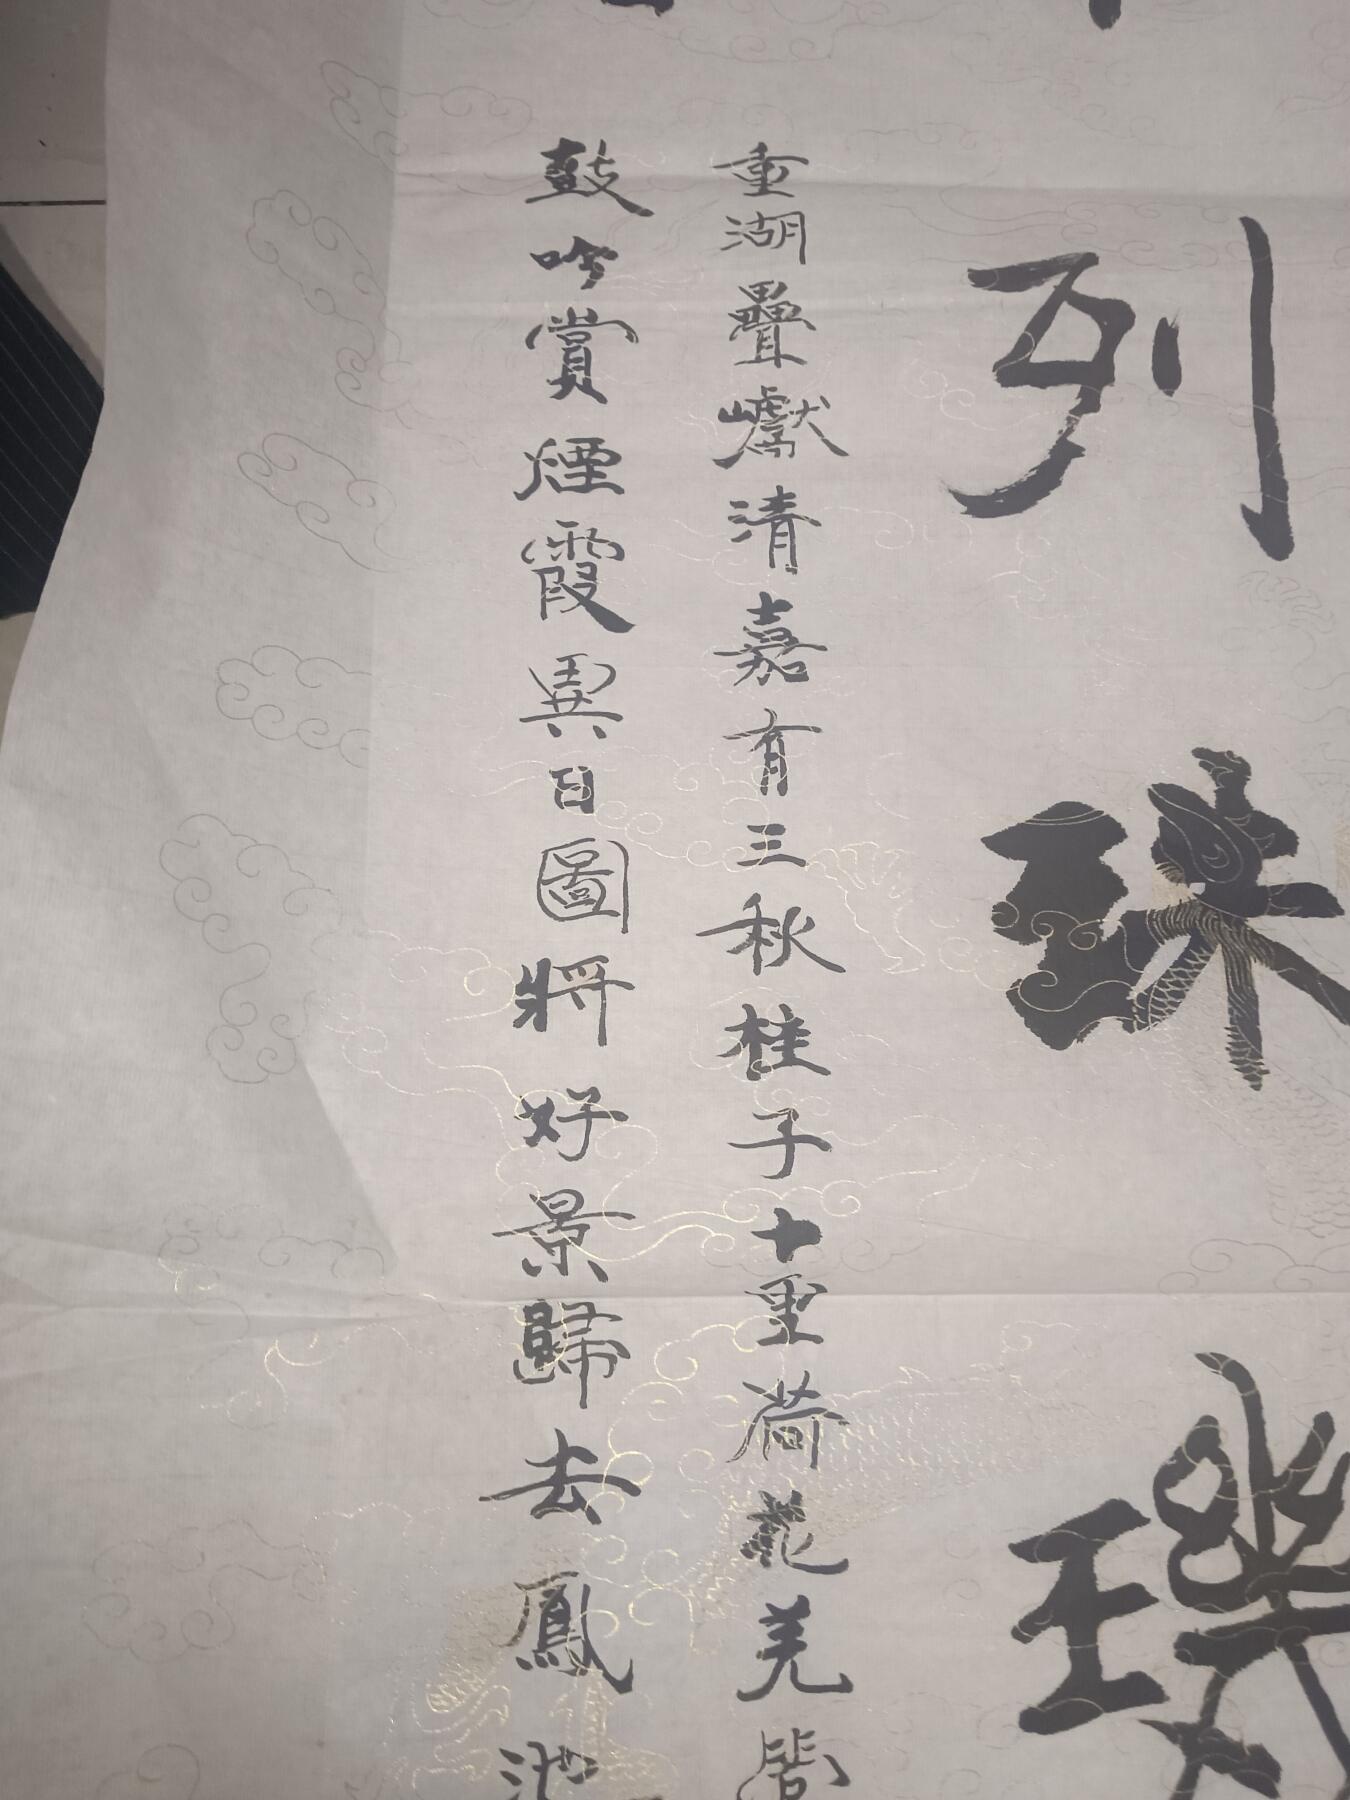 列珠璣
重湖疊巘清嘉有三秋桂子十里荷花羌管
鼓吟賞煙霞異日圖將好景歸去鳳池